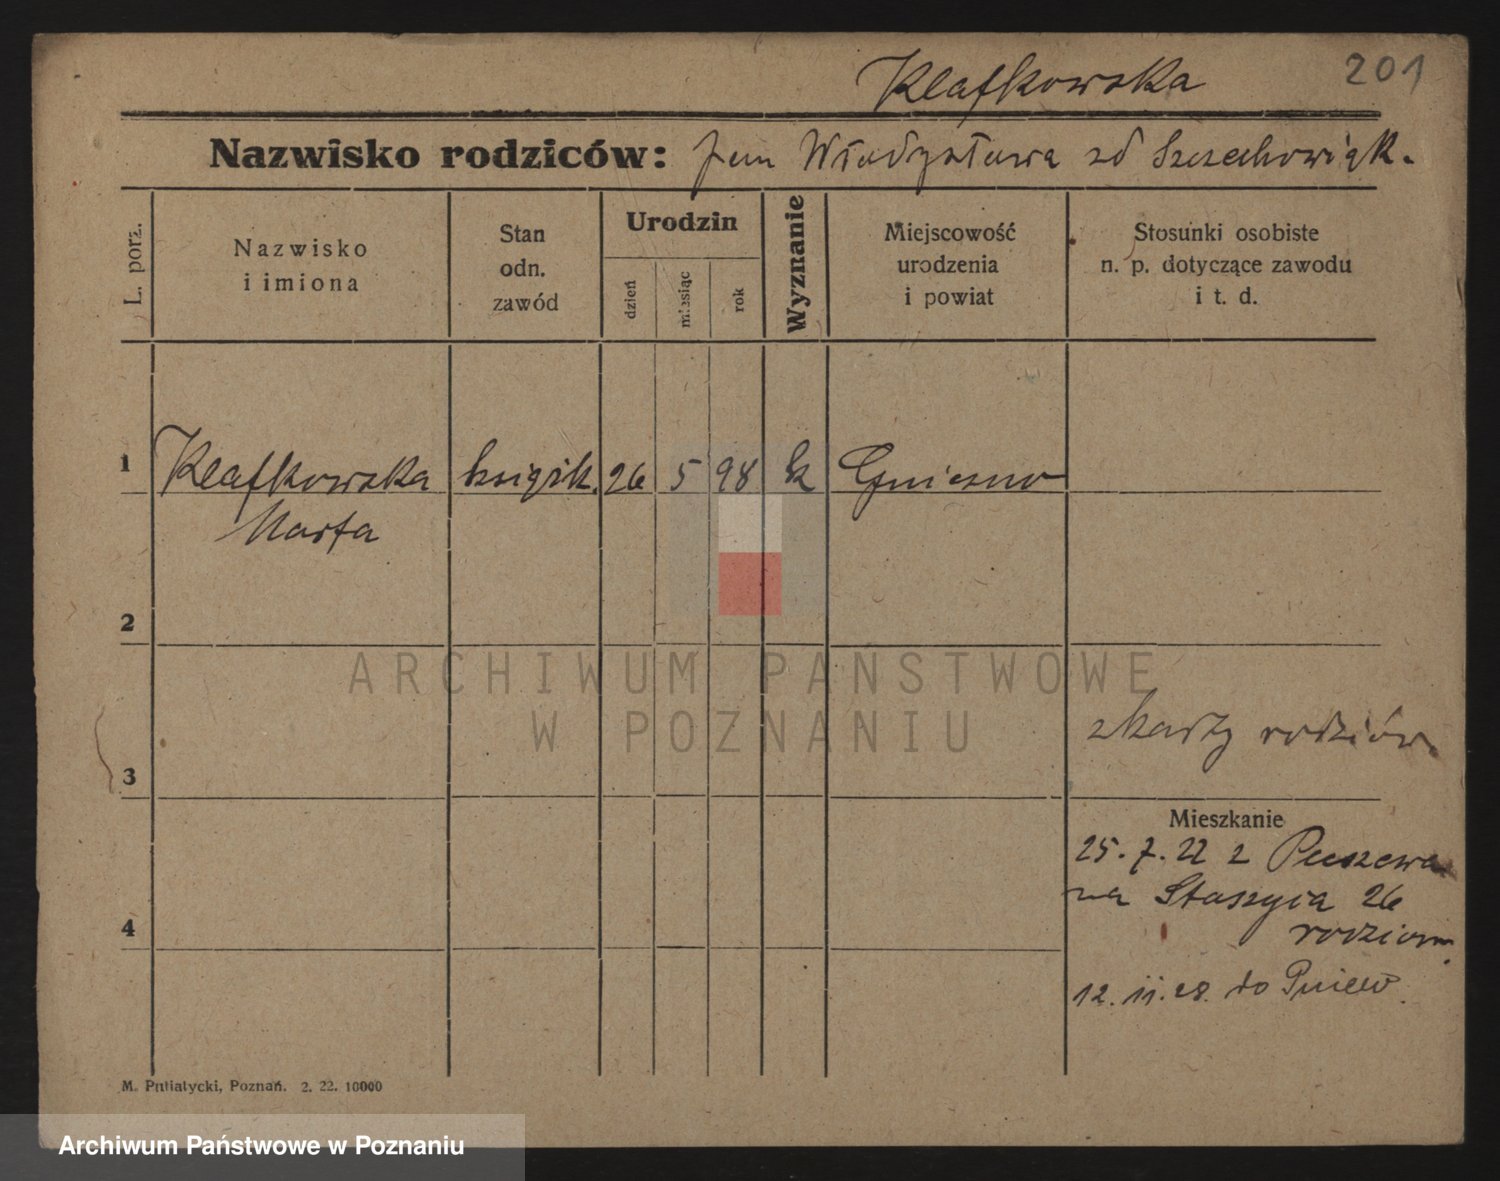 Klafkowska 201
Nazwisko rodziców: Jan Władysława zd Szczechowiak.
L. porz.
Nazwisko
i imiona
Stan
odn.
zawód
Urodzin
dzień
miesiąc
rok
Wyznanie
Miejscowość
urodzenia
i powiat
Stosunki osobiste
n. p. dotyczące zawodu
i t. d.
1 Klafkowska książk. 26 5 98 k Gniezno
Marta
2
ARCHIWUM PAŃSTWOWE
W POZNANIU
z karty rodziców
3
Mieszkanie
25. 7. 22 z
na Staszyca 26
4
rodziców
12. 11. 28. do Pniew.
M. Putiatycki, Poznań. 2. 22. 10000
Archiwum Państwowe w Poznaniu